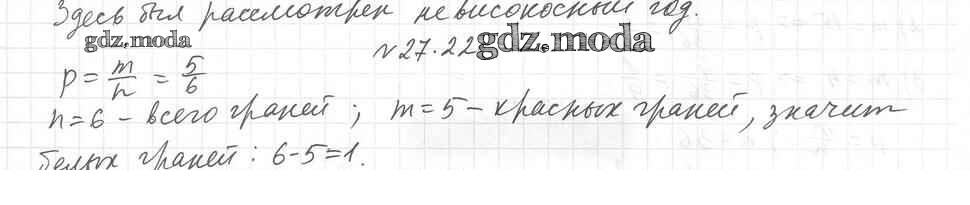 Здесь был рассмотрен невисокосный год.
gdz.moda
№27.22 gdz.moda
p = m/n = 5/6
n=6 - всего граней; m=5 - красных граней, значит
белых граней: 6-5=1.